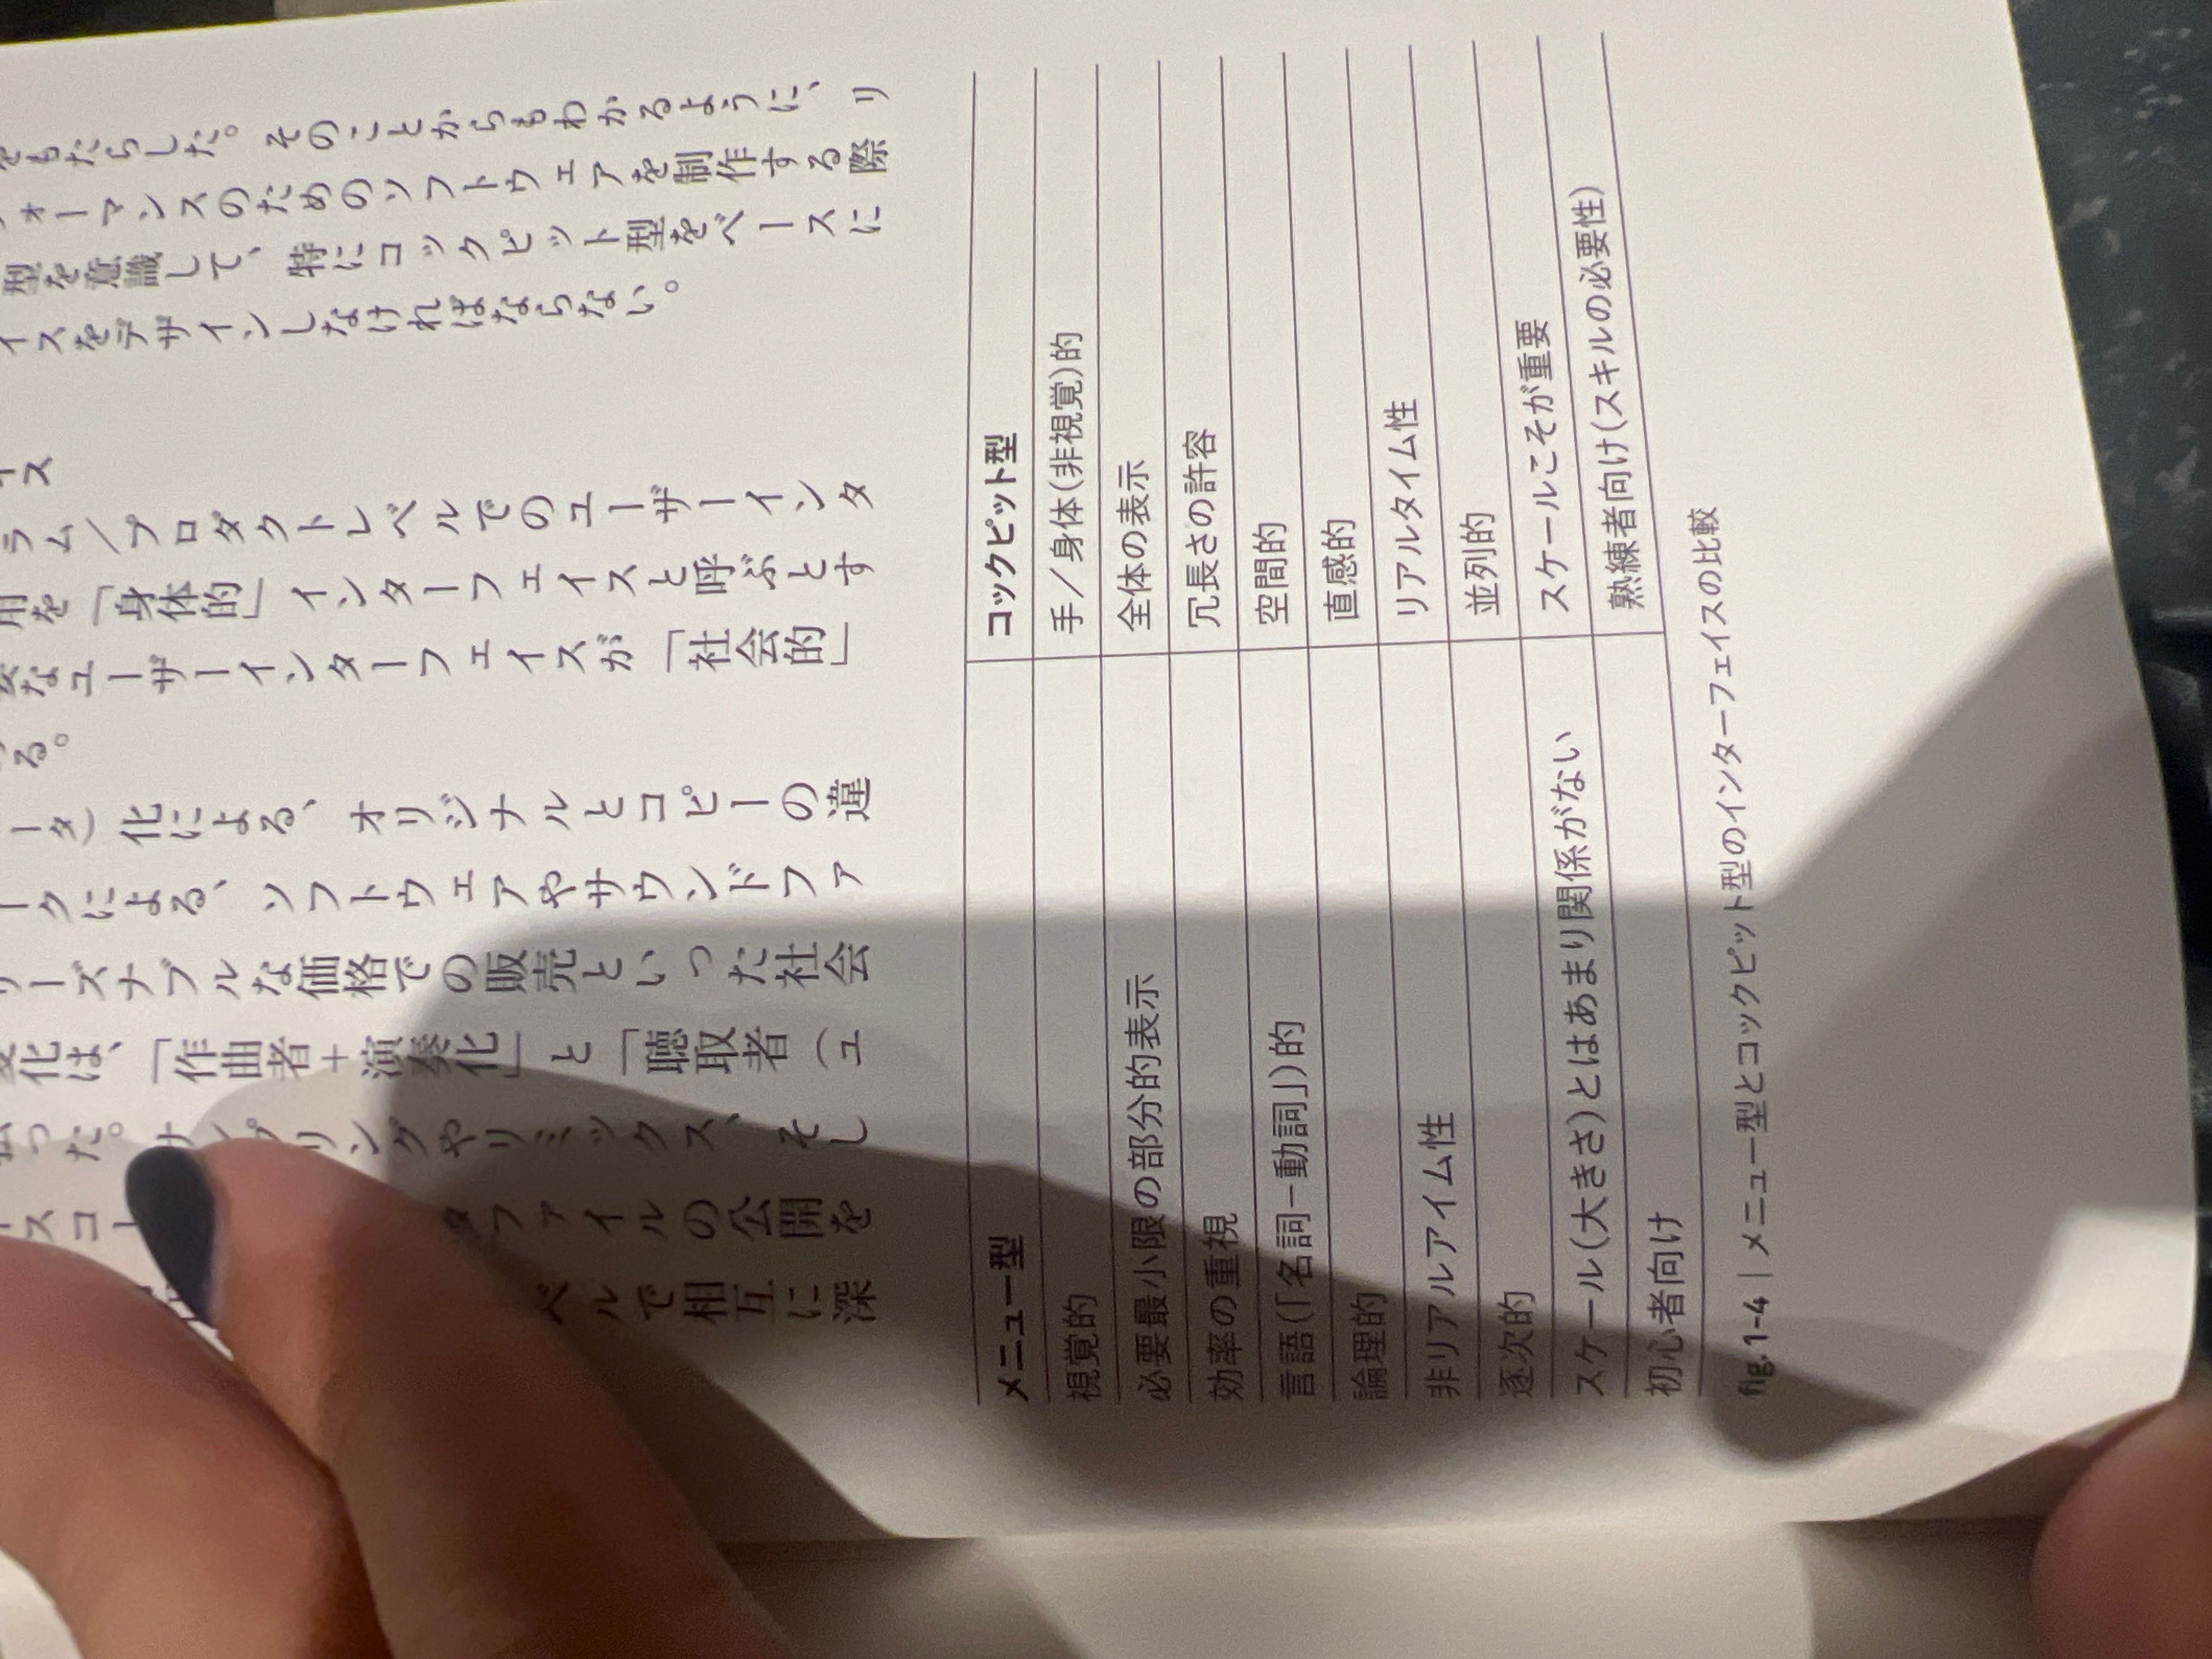 をもたらした。そのことからもわかるように、リ
ォーマンスのためのソフトウェアを制作する際
型を意識して、特にコックピット型をベースに
イスをデザインしなければならない。
イス
ラム／プロダクトレベルでのユーザーインタ
用を「身体的」インターフェイスと呼ぶとす
なユーザーインターフェイスが「社会的」
る。
ータ）化による、オリジナルとコピーの違
ークによる、ソフトウェアやサウンドファ
リーズナブルな価格での販売といった社会
変化は、「作曲者＋演奏化」と「聴取者（ユ
った。サンプリングやリミックス、そし
スコー タファイルの公開を
ベルで相互に深
メニュー型 コックピット型
視覚的 手／身体（非視覚）的
必要最小限の部分的表示 全体の表示
効率の重視 冗長さの許容
言語（「名詞－動詞」）的 空間的
論理的 直感的
非リアルアイム性 リアルタイム性
逐次的 並列的
スケール（大きさ）とはあまり関係がない スケールこそが重要
初心者向け 熟練者向け（スキルの必要性）
fig.1-4｜メニュー型とコックピット型のインターフェイスの比較